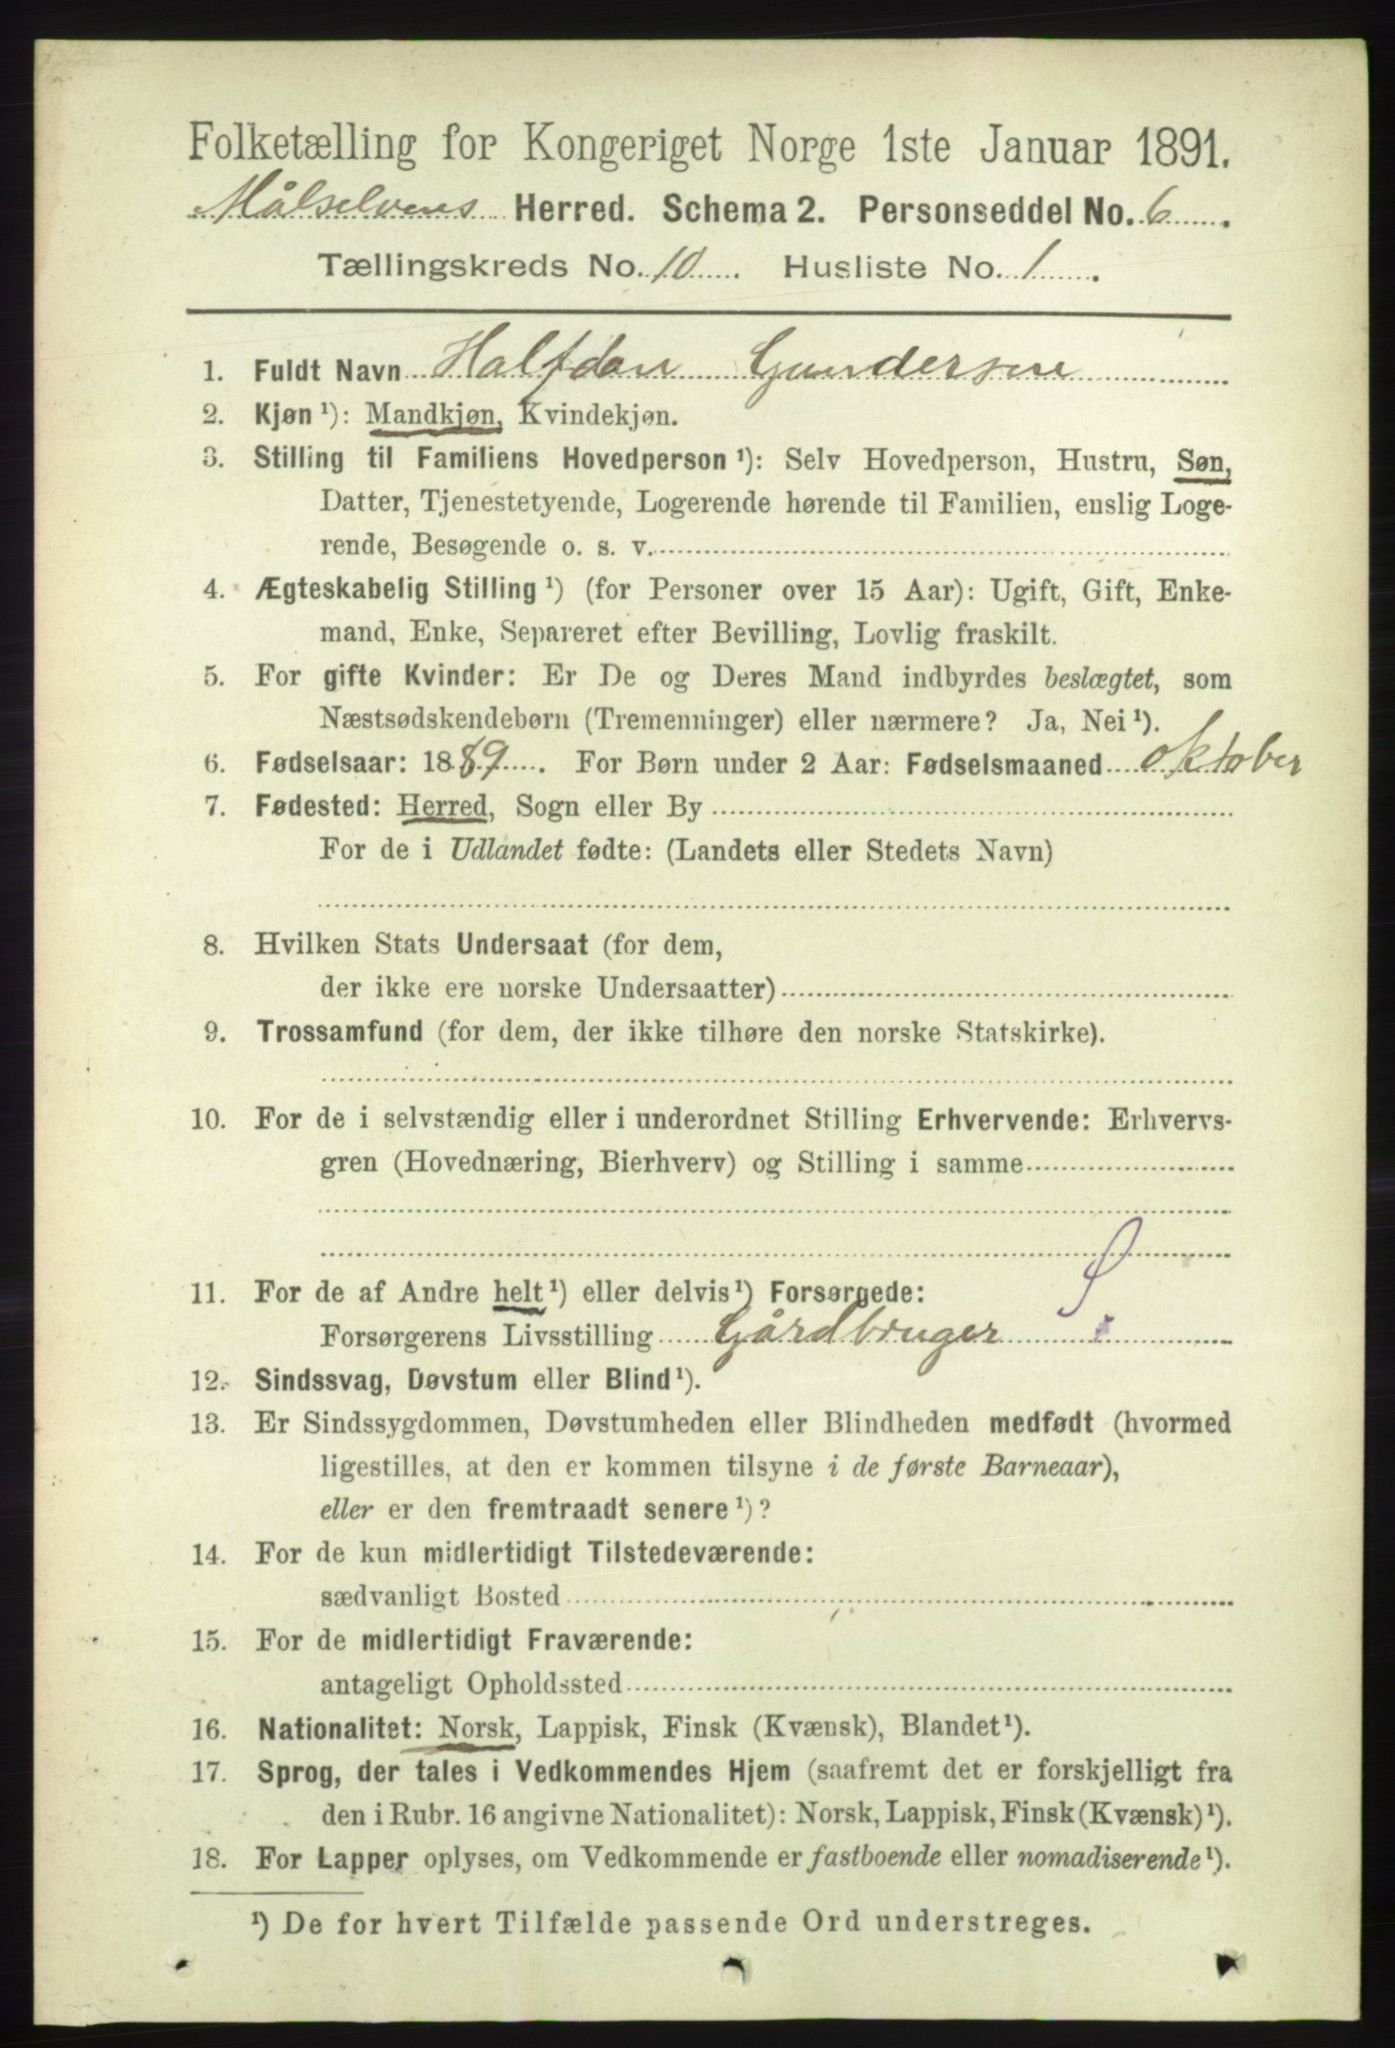 Folketælling for Kongeriget Norge 1ste Januar 1891.
Målselvens Herred. Schema 2. Personseddel No. 6.
Tællingskreds No. 10. Husliste No. 1.
1. Fuldt Navn Halfdan Gundersen
2. Kjøn ¹): Mandkjøn, Kvindekjøn.
3. Stilling til Familiens Hovedperson ¹): Selv Hovedperson, Hustru, Søn,
Datter, Tjenestetyende, Logerende hørende til Familien, enslig Loge-
rende, Besøgende o. s. v.
4. Ægteskabelig Stilling ¹) (for Personer over 15 Aar): Ugift, Gift, Enke-
mand, Enke, Separeret efter Bevilling, Lovlig fraskilt.
5. For gifte Kvinder: Er De og Deres Mand indbyrdes beslægtet, som
Næstsødskendebørn (Tremenninger) eller nærmere? Ja, Nei ¹).
6. Fødselsaar: 1889. For Børn under 2 Aar: Fødselsmaaned oktober
7. Fødested: Herred, Sogn eller By
For de i Udlandet fødte: (Landets eller Stedets Navn)
8. Hvilken Stats Undersaat (for dem,
der ikke ere norske Undersaatter)
9. Trossamfund (for dem, der ikke tilhøre den norske Statskirke).
10. For de i selvstændig eller i underordnet Stilling Erhvervende: Erhvervs-
gren (Hovednæring, Bierhverv) og Stilling i samme
11. For de af Andre helt ¹) eller delvis ¹) Forsørgede:
Forsørgerens Livsstilling Gårdbruger
12. Sindssvag, Døvstum eller Blind ¹).
13. Er Sindssygdommen, Døvstumheden eller Blindheden medfødt (hvormed
ligestilles, at den er kommen tilsyne i de første Barneaar),
eller er den fremtraadt senere ¹)?
14. For de kun midlertidigt Tilstedeværende:
sædvanligt Bosted
15. For de midlertidigt Fraværende:
antageligt Opholdssted
16. Nationalitet: Norsk, Lappisk, Finsk (Kvænsk), Blandet ¹).
17. Sprog, der tales i Vedkommendes Hjem (saafremt det er forskjelligt fra
den i Rubr. 16 angivne Nationalitet): Norsk, Lappisk, Finsk (Kvænsk) ¹).
18. For Lapper oplyses, om Vedkommende er fastboende eller nomadiserende ¹).
¹) De for hvert Tilfælde passende Ord understreges.